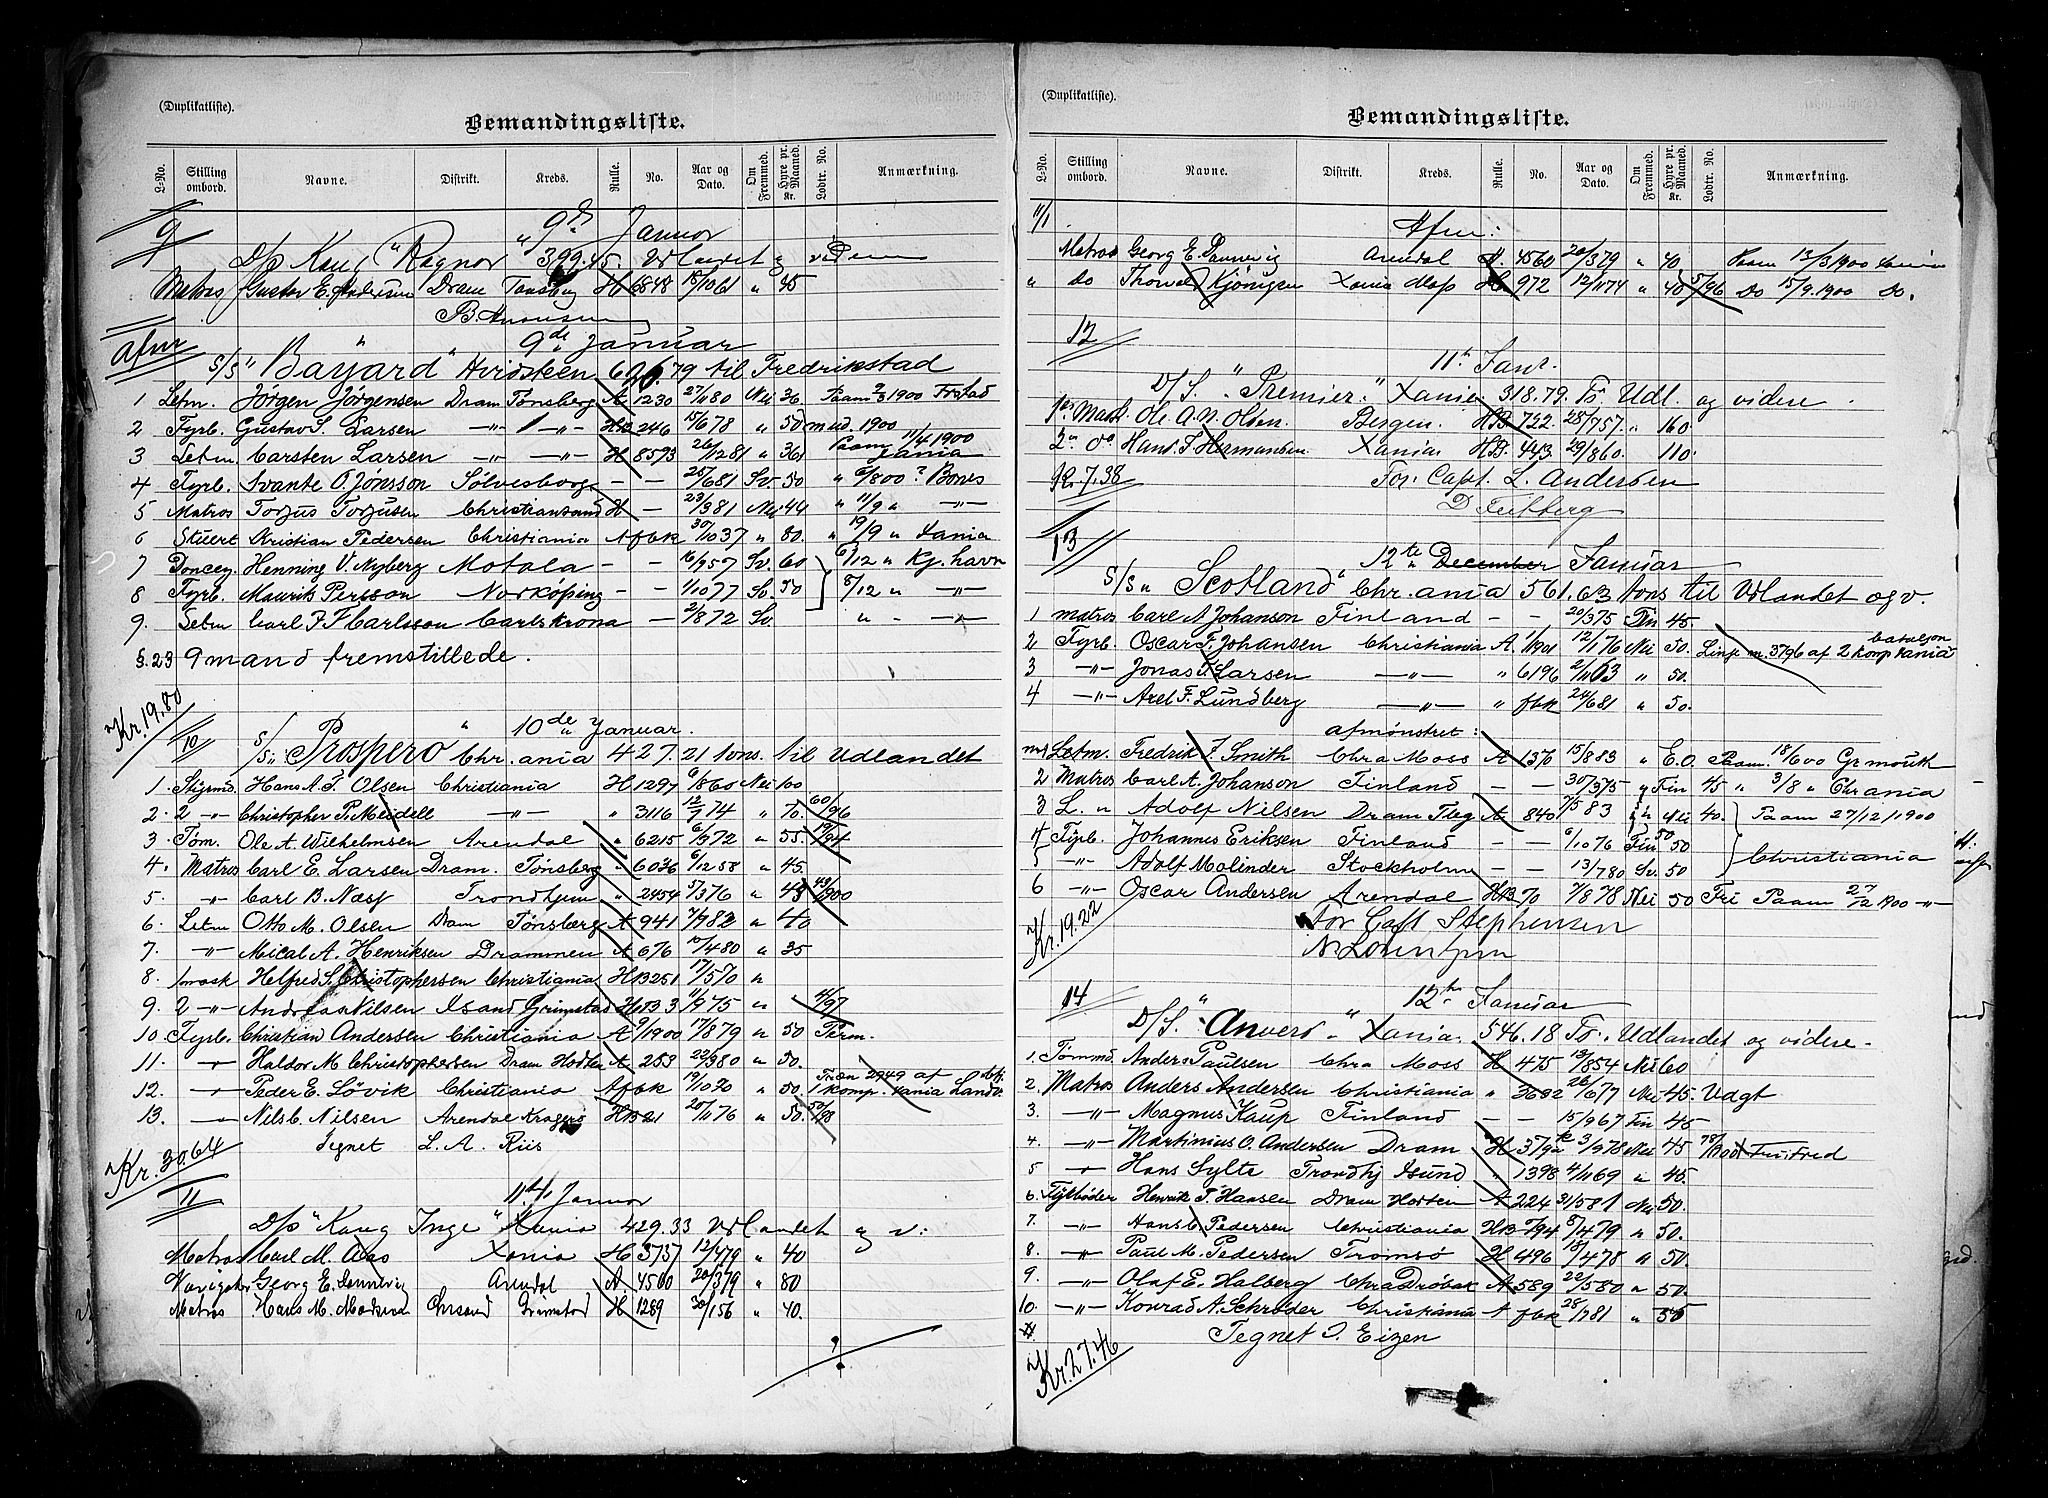 (Duplikatliste).
Bemandingsliste.
L-No. Stilling ombord. Navne. Distrikt. Kreds. Rulle. No. Aar og Dato. Om Fremmed. Hyre pr. Maaned. Kr. Lodtr. No. Anmærkning.
9 9de Januar
D/s Kong "Ragnar" 399.45
Matros Gustav E. Andersen Dram Tønsberg H 6848 18/10 61 " 45
afm 9de Januar
S/S "Bayard" Hvidsteen 626.79 til Fredrikstad
1 Letm. Jørgen Jørgensen Dram Tønsberg A 1230 27/11 80 Nei 36 Paam 2/3 1900 Frstad
2 Fyrb. Gustav S. Larsen -"- -"- 246 15/6 78 " 50 mnd. 1900
3 Letm. Carsten Larsen -"- -"- H 8593 26/12 81 " 36 Paam 11/4 1900
4 Fyrb. Svante O. Jönsson Sölvesborg - - 25/6 81 Sv 50 " 6/8 00
5 Matros Torjus Torjusen Christiansand H - 23/3 81 Nei 44 " 11/9 " -"-
6 Stuert Kristian Pedersen Christiania A fbk 30/10 37 " 80. 19/9 " Xania
7 Doncey. Henning V. Nyberg Motala - - 16/9 57 Sv. 60 6/12 " Kj.havn
8 Fyrb. Maurits Persson Norköping - - 1/10 77 Sv. 50 5/12 " -"-
9. Letm Carl P. F. Carlsson Carlskrona - 2/8 72 Sv. " -"-
§.23 9 mand fremstillede.
Kr. 19.80
10 10de Januar.
S/S "Prospero" Chr.ania 427.21 tons. til Udlandet
1. Styrmd. Hans A. F. Olsen Christiania H 1297 6/8 60 Nei 100
2. 2 -"- Christopher P. Meidell -"- " 3116 12/7 74 " 70. 60/96
3. Tøm. Ole A. Wilhelmsen Arendal " 6215 6/9 72 " 55. 19/94
4. Matros Carl E. Larsen Dram. Tönsberg " 6036 9/12 58 " 45.
5. -"- Carl B. Næss Trondhjem " 2454 5/3 76 " 43 43/900
6. Letm Otto M. Olsen Dram Tönsberg A 941 7/9 82 " 40
7. -"- Mical A. Henriksen Drammen A 676 10/4 80 " 35
8. 1mask Helfred S. Christophersen Christiania HB 251 17/5 70 "
9. 2 -"- Andreas Nilsen Xsand Grimstad 11/9 75 " 4/97
10. Fyrb. Christian Andersen Christiania A 9/1900 17/8 79 " 50 Perm.
11. Haldor M Christophersen Dram Horten A 253 22/9 80 " 50.
12. Peder E. Lövik Christiania A fbk 19/10 70 " 50. Træn 2949 af 1 Komp. Xania Landv.
13. Nils C. Nilsen Arendal Kragerø HB 21 20/11 76 " 50. 50/98
Tegnet L. A. Riis
Kr. 30.64
11 11te Januar
D/s "Kong Inge" Xania 429.33 Udlandet og v:
Matros Carl M. Aas Xania H 3737 12/4 79 " 40
Navigatør Georg E. Arendal A. 4560 20/3 79 " 80
Matros Hans M. Chrsand Grimstad H 1289 30/1 56 " 40.

(Duplikatliste).
Bemandingsliste.
L-No. Stilling ombord. Navne. Distrikt. Kreds. Rulle. No. Aar og Dato. Om Fremmed. Hyre pr. Maaned. Kr. Lodtr. No. Anmærkning.
11/1 Afm:
Matros Georg E. Arendal A. 4560 20/3 79 " 40 Paam 13/3 1900 Xania
" do Thorval Kjönigen Xania 972 12/11 74 " 40 5/96 Do 15/9.1900 Do.
12 11te Janr.
D/S. "Premier" Xania 318.79. To Udl. og videre.
1ste Mask. Ole A. N. Olsen. Bergen. HB. 722. 28/7 57. " 160
2n do Hans F. Hermansen Xania. HB. 443 29/8 60. 110.
Kr. 7.38 For Capt. L. Andersen
13 12te December Januar
S/S "Scotland" Chr.ania 561.63 tons til Udlandet og v.
1 Matros Carl A Johanson Finland - - 20/3 75 Fin 45
2 Fyrb. Oscar F. Johansen Christiania A 12/1 76 Nei 50. Linje m. 3796 af 2 Komp Xania bataljon
3 -"- Jonas F. Larsen -"- " 6196 2/11 63 " 50.
4 -"- Axel F. Lundberg -"- " fbk 24/6 81 " 50.
afmønstret:
Letm. Fredrik F. Smith Chra Moss A 1376 15/8 83 " E.O. Paam. 18/6 00
2 Matros Carl A. Johanson Finland - - 30/3 75 Fin 45 " 3/8 " Chrania
3 L. " Adolf Nilsen Dram Tbg A 840 7/5 83 Nei 40. Paam 27/12/1900
4 Fyrb. Johannes Eriksen Finland - - 6/10 76 Fin 50
5 -"- Adolf Molinder Stockholm - - 13/7 80 Sv. 50 Christiania
6 -"- Oscar Andersen Arendal HB 70 7/8 78 Nei 50 Fri Paam 27/12 1900 -"-
Kr. 19.22 For Capt Stephensen
14 12te Januar
D/S. "Anvers" Xania. 546.18 To. Udlandet og videre.
1. Tømmd. Anders Paulsen Chra Moss H 475 13/8 54 Nei 60
2. Matros Anders Andersen Christiania " 3692 26/6 77 Nei 45. Udgt
3. -"- Magnus Kaup Finland - 15/9 67 Fin 45
4. -"- Martinius O. Andersen Dram H 3/9 78 Nei 45
5 Hans Sylte Trondhj Xsund " 1398 4/11 69 " 45.
6. Fyrbøder Henrik T. Hansen Dram Horten A 224 31/5 81 Nei 50.
7. -"- Hans C. Pedersen Christiania HB 794 8/4 79 " 50.
8. -"- Paul M. Pedersen Tromsö H 496 18/4 78 " 50.
9. -"- Olaf E. Halberg Chra Drøbak A 589 22/5 80 " 50.
10. -"- Konrad A. Schrøder Christiania A fbk 28/7 81 " 50
Tegnet J. Eizen
Kr. 27.46